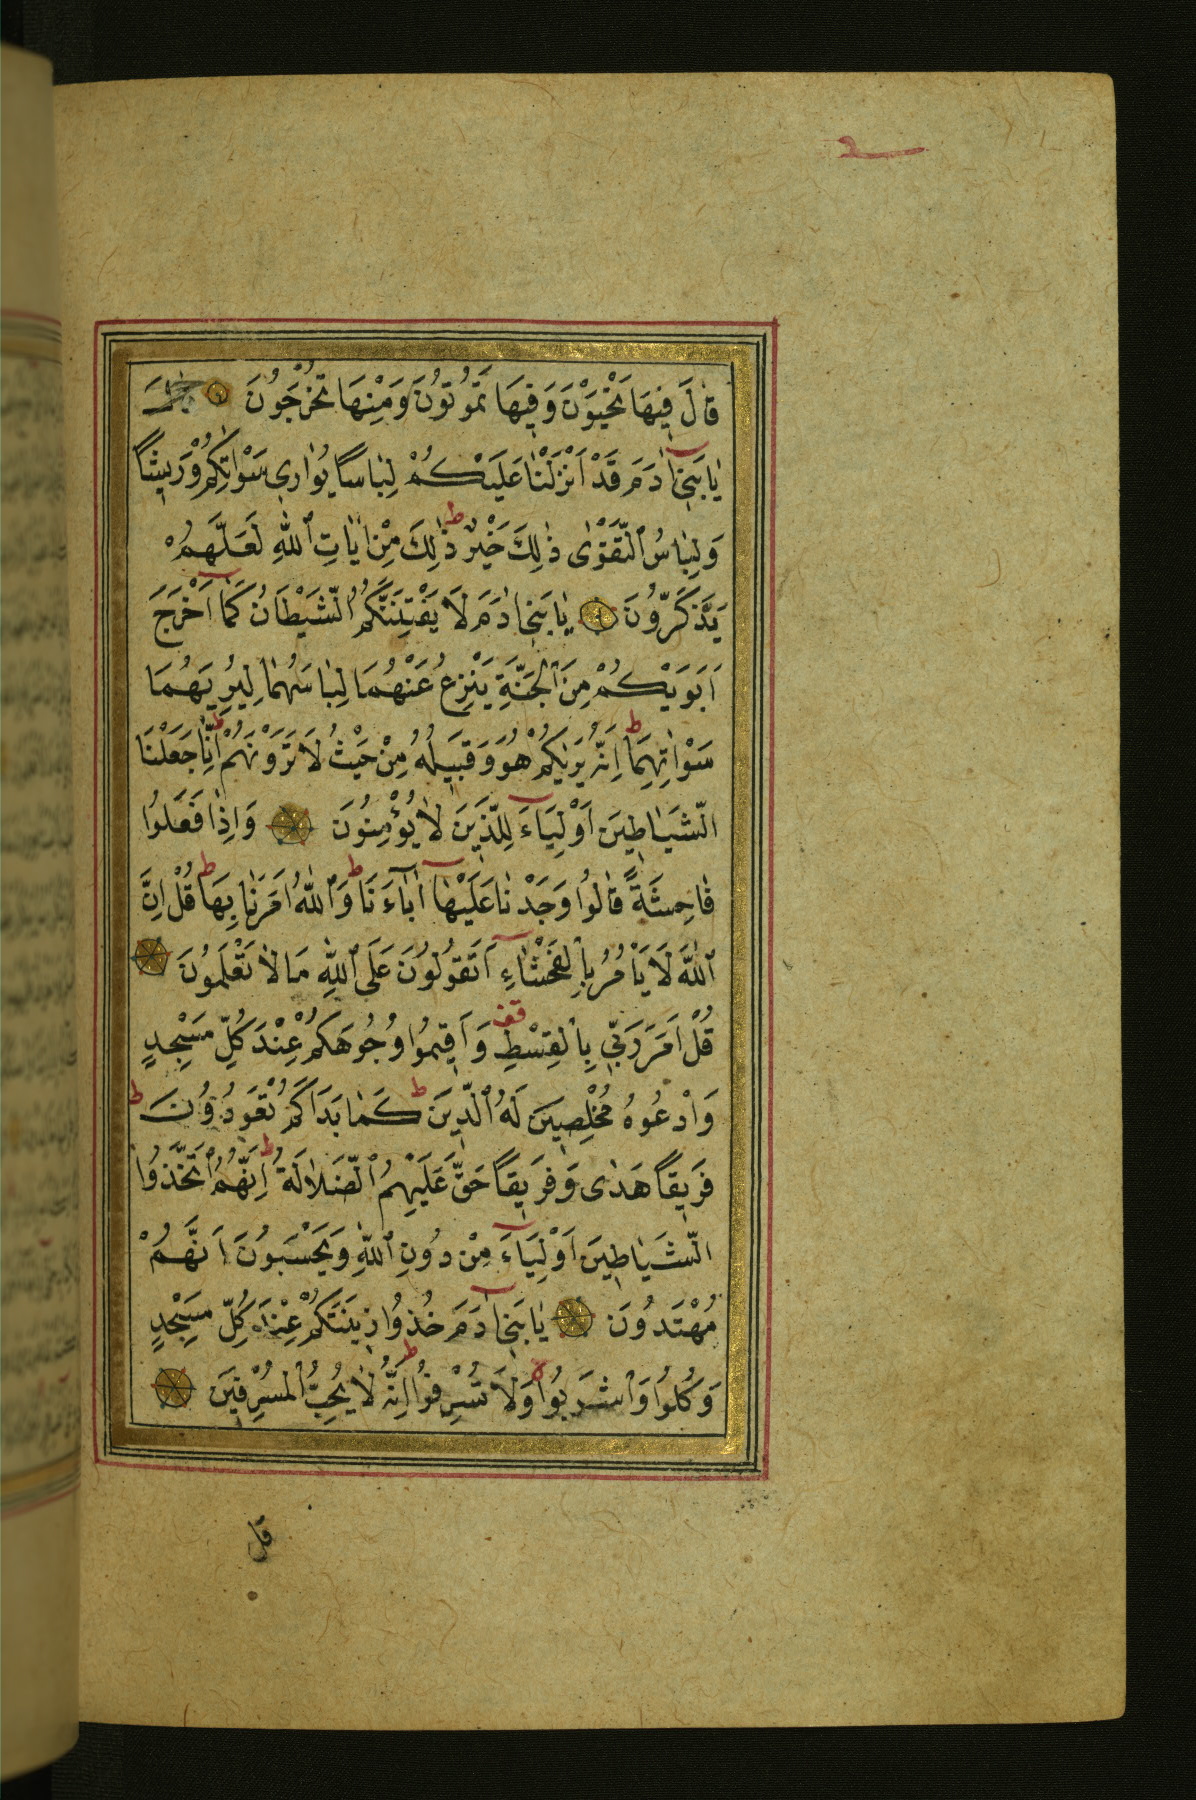 قَالَ فِيهَا تَحْيَوْنَ وَفِيهَا تَمُوتُونَ وَمِنْهَا تُخْرَجُونَ
يَابَنِي آدَمَ قَدْ أَنْزَلْنَا عَلَيْكُمْ لِبَاسًا يُوَارِي سَوْاتِكُمْ وَرِيشًا
وَلِبَاسُ التَّقْوٰى ذٰلِكَ خَيْرٌ ط ذٰلِكَ مِنْ اٰيَاتِ اللّٰهِ لَعَلَّهُمْ
يَذَّكَّرُونَ يَابَنِي اٰدَمَ لَا يَفْتِنَنَّكُمُ الشَّيْطَانُ كَمَا اَخْرَجَ
اَبَوَيْكُمْ مِنَ الْجَنَّةِ يَنْزِعُ عَنْهُمَا لِبَاسَهُمَا لِيُرِيَهُمَا
سَوْاٰتِهِمَا ط اِنَّهُ يَرٰيكُمْ هُوَ وَقَبِيلُهُ مِنْ حَيْثُ لَا تَرَوْنَهُمْ ط اِنَّا جَعَلْنَا
الشَّيَاطِينَ اَوْلِيَاءَ لِلَّذِينَ لَا يُؤْمِنُونَ وَاِذَا فَعَلُوا
فَاحِشَةً قَالُوا وَجَدْنَا عَلَيْهَا اٰبَاءَنَا ط وَاللّٰهُ اَمَرَنَا بِهَا ط قُلْ اِنَّ
اللّٰهَ لَا يَاْمُرُ بِالْفَحْشَاءِ اَتَقُولُونَ عَلَى اللّٰهِ مَا لَا تَعْلَمُونَ
قُلْ اَمَرَ رَبِّي بِالْقِسْطِ قف وَاَقِيمُوا وُجُوهَكُمْ عِنْدَ كُلِّ مَسْجِدٍ
وَادْعُوهُ مُخْلِصِينَ لَهُ الدِّينَ ط كَمَا بَدَاَكُمْ تَعُودُونَ ط
فَرِيقًا هَدٰى وَفَرِيقًا حَقَّ عَلَيْهِمُ الضَّلَالَةُ ط اِنَّهُمُ اتَّخَذُوا
الشَّيَاطِينَ اَوْلِيَاءَ مِنْ دُونِ اللّٰهِ وَيَحْسَبُونَ اَنَّهُمْ
مُهْتَدُونَ يَابَنِي اٰدَمَ خُذُوا زِينَتَكُمْ عِنْدَ كُلِّ مَسْجِدٍ
وَكُلُوا وَاشْرَبُوا وَلَا تُسْرِفُوا ط اِنَّهُ لَا يُحِبُّ الْمُسْرِفِينَ
قل